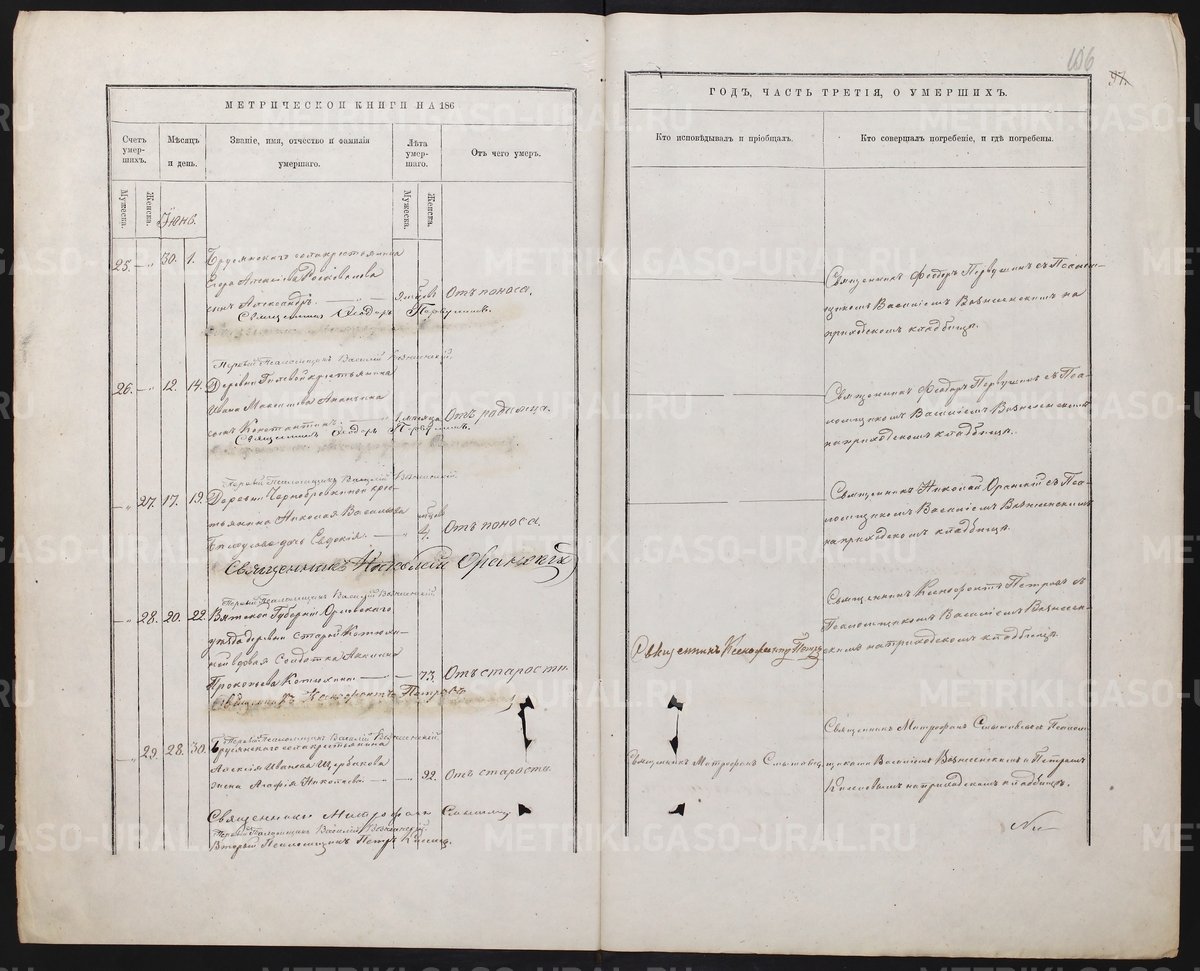 106
97.
МЕТРИЧЕСКОЙ КНИГИ НА 186
ГОДЪ, ЧАСТЬ ТРЕТІЯ, О УМЕРШИХЪ.
Счетъ умер-шихъ.
Мѣсяцъ и день.
Званіе, имя, отчество и фамилія умершаго.
Лѣта умер-шаго.
Отъ чего умеръ.
Кто исповѣдывалъ и пріобщалъ.
Кто совершалъ погребеніе, и гдѣ погребены.
Мужеска.
Женска.
Мужеска.
Женска.
Іюнь.
25. 30. 1.
Брусянскаго села крестьянина
Егора Алексѣева
сынъ Александръ.
Отъ поноса.
Священникъ Ѳеодоръ Первушинъ.
Первый Псаломщикъ Василій Вознесенскій.
Священникъ Ѳеодоръ Первушинъ съ Псалом-
щикомъ Василіемъ Вознесенскимъ на
приходскомъ кладбищѣ.
26. 12. 14.
Деревни крестьянина
Ивана Максимова
сынъ Константинъ.
1 мѣсяца
Отъ родимца.
Священникъ Ѳеодоръ Первушинъ.
Первый Псаломщикъ Василій Вознесенскій.
Священникъ Ѳеодоръ Первушинъ съ Пса-
ломщикомъ Василіемъ Вознесенскимъ
на приходскомъ кладбищѣ.
27. 17. 19.
Деревни Чернобровкиной кре-
стьянина Николая Васильева
дочь Евдокія.
4.
Отъ поноса.
Священникъ Николай Оранскій
Первый Псаломщикъ Василій Вознесенскій
Священникъ Николай Оранскій съ Пса-
ломщикомъ Василіемъ Вознесенскимъ
на приходскомъ кладбищѣ.
28. 20. 22.
Вятской Губерніи Орловскаго
уѣзда деревни Старой Котюхи-
ной вдовая Солдатка Акилина
Прокопьева Котюхина.
73.
Отъ старости.
Священникъ Ксенофонтъ Петровъ
Первый Псаломщикъ Василій Вознесенскій
Священникъ Ксенофонтъ Петровъ
Священникъ Ксенофонтъ Петровъ съ
Псаломщикомъ Василіемъ Вознесен-
скимъ на приходскомъ кладбищѣ.
29. 28. 30.
Брусянскаго села крестьянина
Алексія Иванова Щербакова
жена Агафія Николаева.
92.
Отъ старости
Священникъ Митрофанъ
Первый Псаломщикъ Василій Вознесенскій.
Второй Псаломщикъ Петръ Киселевъ.
Священникъ Митрофанъ
Священникъ Митрофанъ съ Псалом-
щиками Василіемъ Вознесенскимъ и Петромъ
Киселевымъ на приходскомъ кладбищѣ.
METRIKI.GASO-URAL.RU